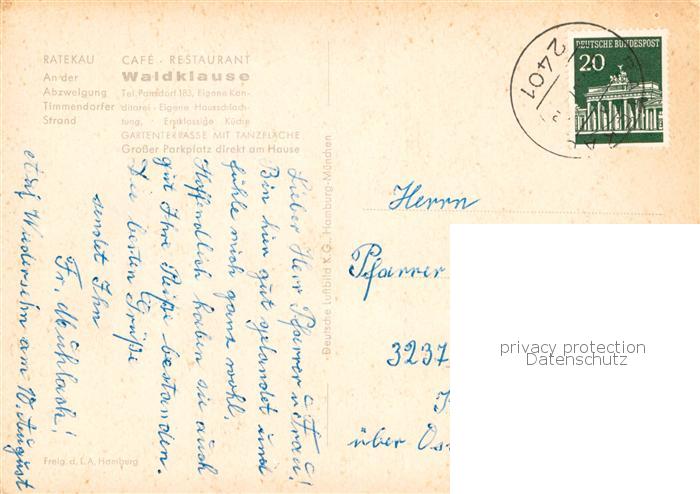 RATEKAU CAFÉ · RESTAURANT
An der Waldklause
Abzweigung Tel. Pansdorf 183, Eigene Kon-
Timmendorfer ditorei · Eigene Hausschlach-
Strand tung, · Erstklassige Küche
GARTENTERRASSE MIT TANZFLÄCHE
Großer Parkplatz direkt am Hause
DEUTSCHE BUNDESPOST
20
2401
Lieber Herr Pfarrer u. Frau!
Bin hier gut gelandet und
fühle mich ganz wohl.
Hoffendlich haben sie auch
gut Ihre Reiße bestanden.
Die besten Grüße
sendet Ihn
Fr.
Wiedersehn am 10. August
Deutsche Luftbild K.G. Hamburg-München
Herrn
Pfarrer
3237
über
privacy protection
Datenschutz
Freig. d. L.A. Hamburg